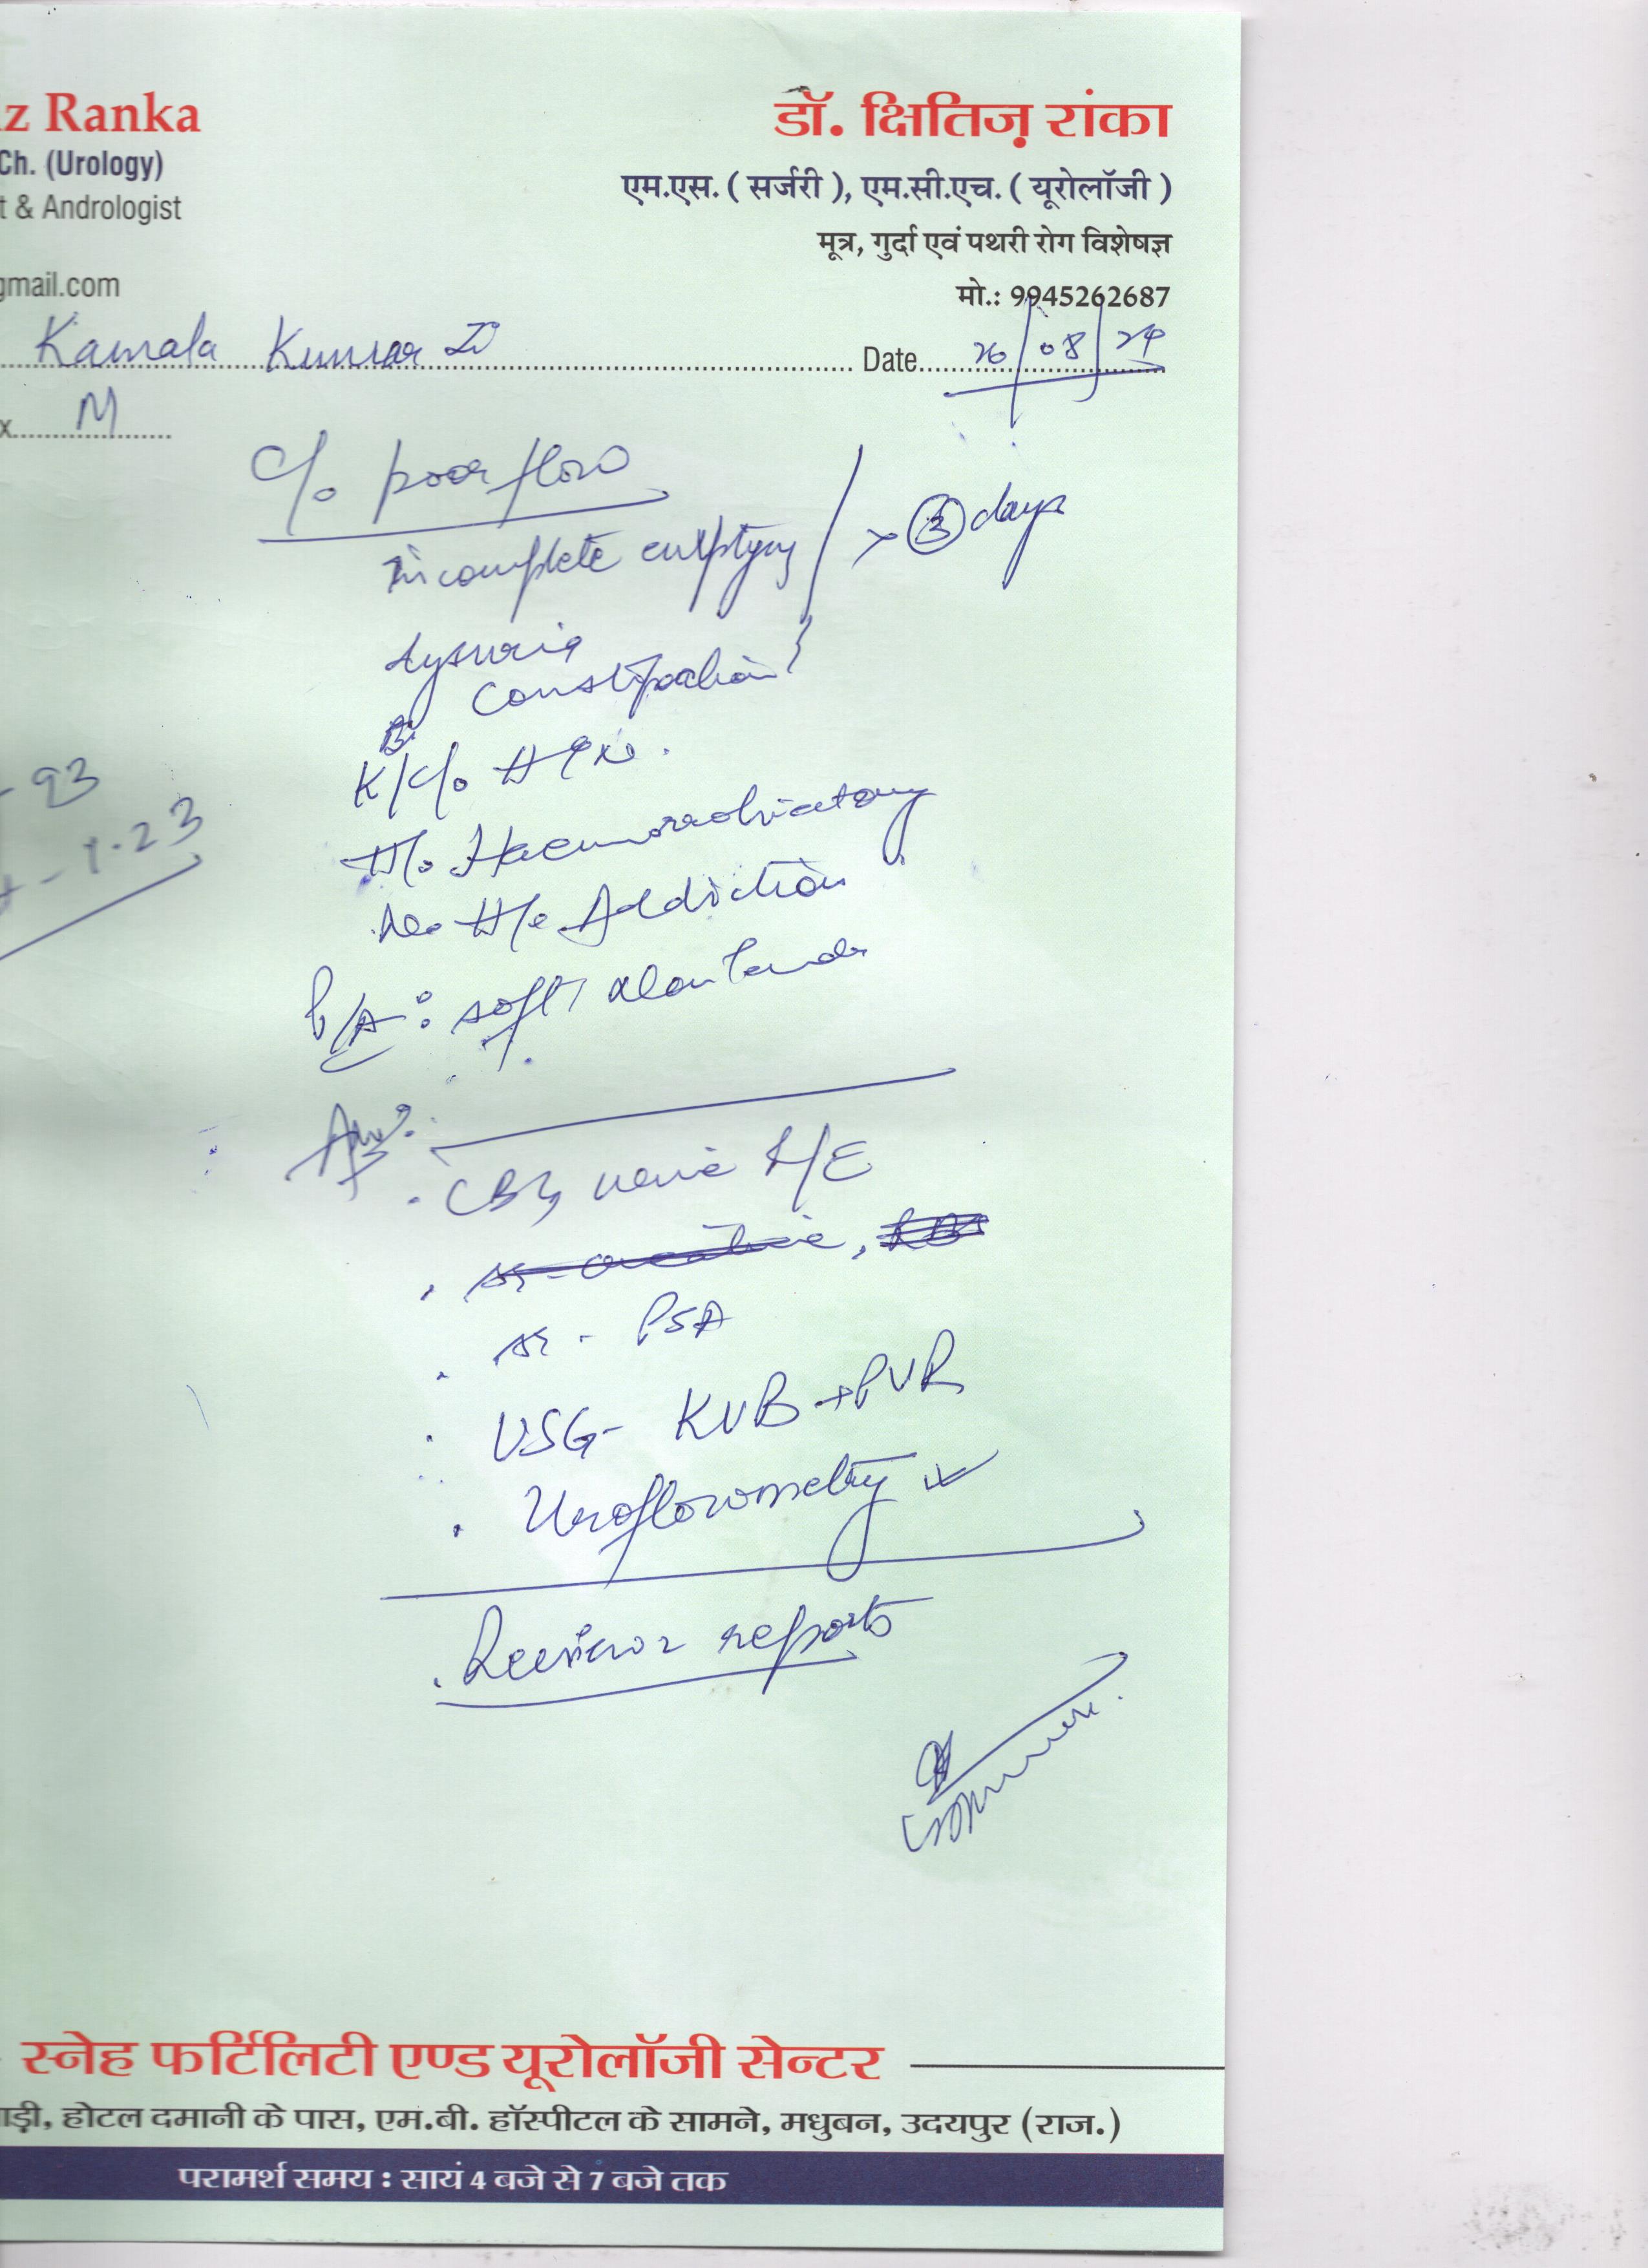 z Ranka
डॉ. क्षितिज़ रांका
Ch. (Urology)
एम.एस. ( सर्जरी ), एम.सी.एच. ( यूरोलॉजी )
t & Andrologist
मूत्र, गुर्दा एवं पथरी रोग विशेषज्ञ
gmail.com
मो.: 9945262687
Kamala Kumar
Date 26/08/24
x M
C/o poor flow
Incomplete emptying
x 3 days
dysuria
constipation
K/C/o HTN.
- 93
H/o Haemorrhoidectomy
- 1.23
No H/o Addiction
P/A: soft, Nontender
Adv:
. CBC, urine R/E
. sr. creatinine,
. sr. PSA
. USG- KUB + PVR
. Uroflowmetry
. Review reports
स्नेह फर्टिलिटी एण्ड यूरोलॉजी सेन्टर
ाड़ी, होटल दमानी के पास, एम.बी. हॉस्पीटल के सामने, मधुबन, उदयपुर (राज.)
परामर्श समय : सायं 4 बजे से 7 बजे तक